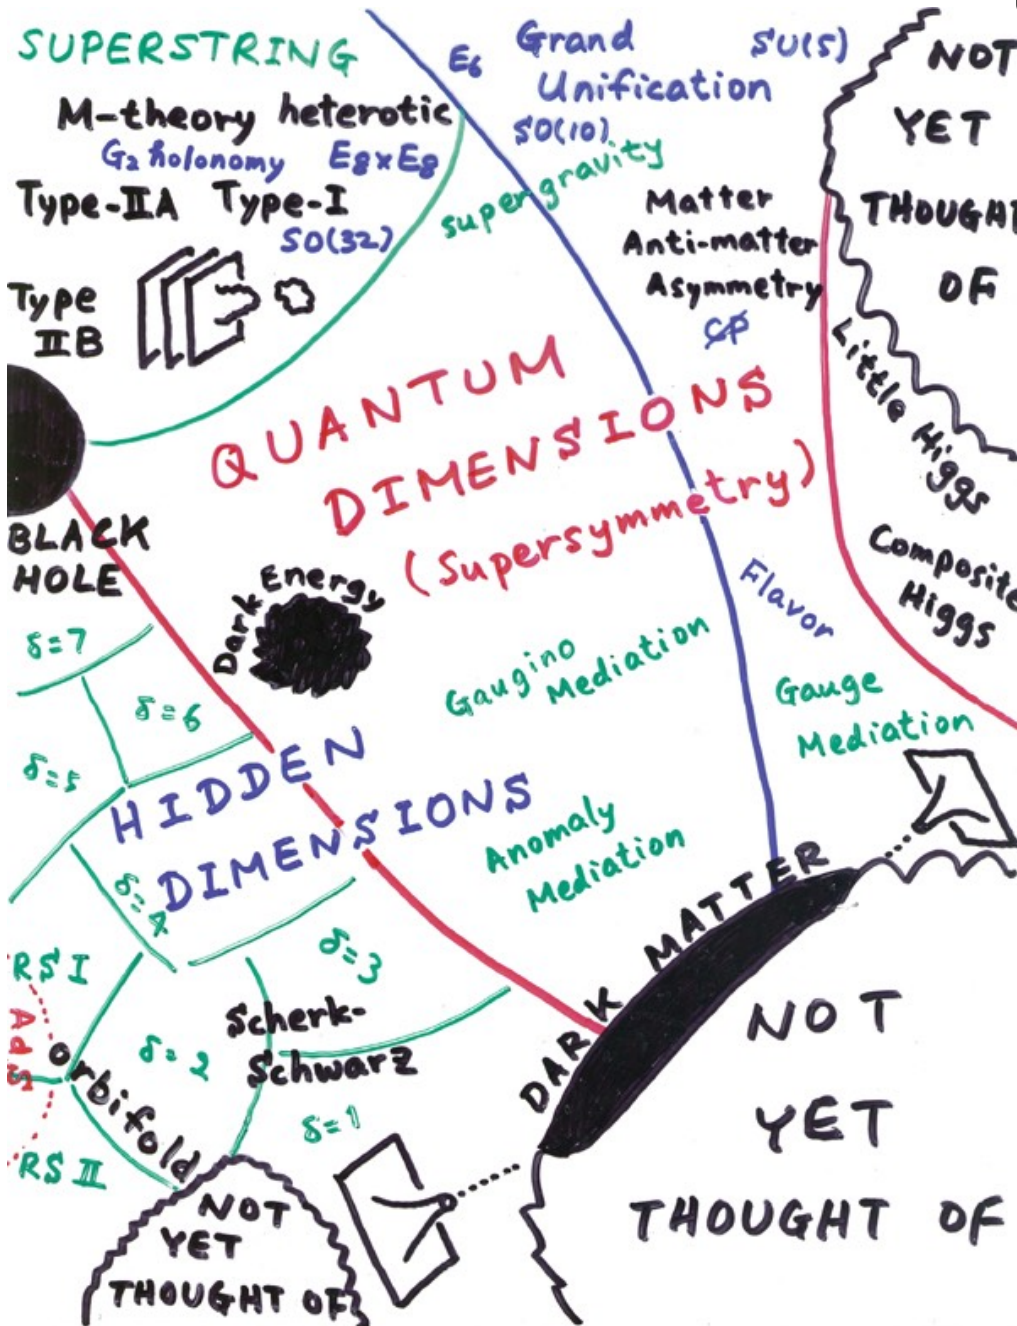 SUPERSTRING
M-theory heterotic
G₂ holonomy E8xE8
Type-IIA Type-I
SO(32)
Type
IIB
E₆
Grand
Unification
SU(5)
SO(10)
supergravity
Matter
Anti-matter
Asymmetry
CP
NOT
YET
THOUGHT
OF
Little Higgs
Composite
Higgs
QUANTUM
DIMENSIONS
(Supersymmetry)
BLACK
HOLE
Dark Energy
Flavor
Gaugino
Mediation
Gauge
Mediation
Anomaly
Mediation
δ=7
δ=6
δ=5
HIDDEN
DIMENSIONS
δ=4
δ=3
RS I
APS
RS II
Orbifold
δ=2
Scherk-
Schwarz
δ=1
DARK MATTER
NOT
YET
THOUGHT OF
NOT
YET
THOUGHT OF